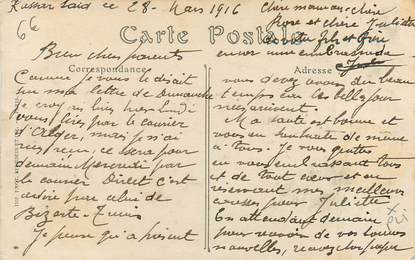 Kassar Saïd ce 28 Mars 1916
66
Bien chers parents
Carte Postale
Correspondance
Adresse
Comme je vous le disait
sur ma lettre de Dimanche
je croyais bien hier Lundi
vous lire par le courrier
d'Alger, mais je n'ai
rien reçu, ce sera pour
demain Mercredi par
le courrier Direct c'est
à dire par celui de
Bizerte-Tunis
Je pense qu'à présent
vous devez avoir du beau
temps car ces belles pour
Ma santé est bonne et
vous en souhaite de même
à tous. Je vous quitte
en vous embrassant tous
et de tout cœur et en
réservant mes meilleurs
caresses pour Juliette
En attendant demain
pour avoir de vos bonnes
nouvelles, recevez chers papa
chère maman, chère
Rose et chère Juliette
de votre fils et frère
encor une embrassade